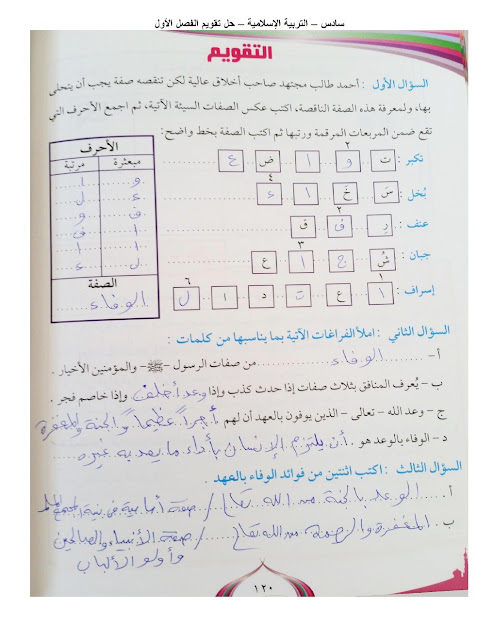 سادس – التربية الإسلامية – حل تقويم الفصل الأول
التقويم
السؤال الأول : أحمد طالب مجتهد صاحب أخلاق عالية لكن تنقصه صفة يجب أن يتحلى
بها، ولمعرفة هذه الصفة الناقصة، اكتب عكس الصفات السيئة الآتية، ثم اجمع الأحرف التي
تقع ضمن المربعات المرقمة ورتبها ثم اكتب الصفة بخط واضح:
الأحرف
مبعثرة مرتبة
و ا
ء ل
ف و
ا ف
ا ا
ل ء
الصفة
الوفاء
٢
تكبر : ت و ا ض ع
٤
بُخل : سَ خَ ا ء
٢
عنف : رِ ف ق
٣
جبان : شُ ج ا ع
١ ٦
إسراف : ا ع ت د ا ل
السؤال الثاني : املأ الفراغات الآتية بما يناسبها من كلمات :
أ- الوفاء من صفات الرسول -ﷺ- والمؤمنين الأخيار .
ب – يُعرف المنافق بثلاث صفات إذا حدث كذب وإذا وعد أخلف وإذا خاصم فجر .
ج – وعد الله – تعالى – الذين يوفون بالعهد أن لهم أجراً عظيماً والجنة والمغفرة
د – الوفاء بالوعد هو . أن يلتزم الإنسان بأداء ما يعد به غيره
السؤال الثالث : اكتب اثنتين من فوائد الوفاء بالعهد.
أ . الوعد بالجنة من الله تعالى / صفة أساسية في بنية المجتمع المسلم
ب . المغفرة والرحمة من الله تعالى / صفة الأنبياء والصالحين
وأولو الألباب
١٢٠